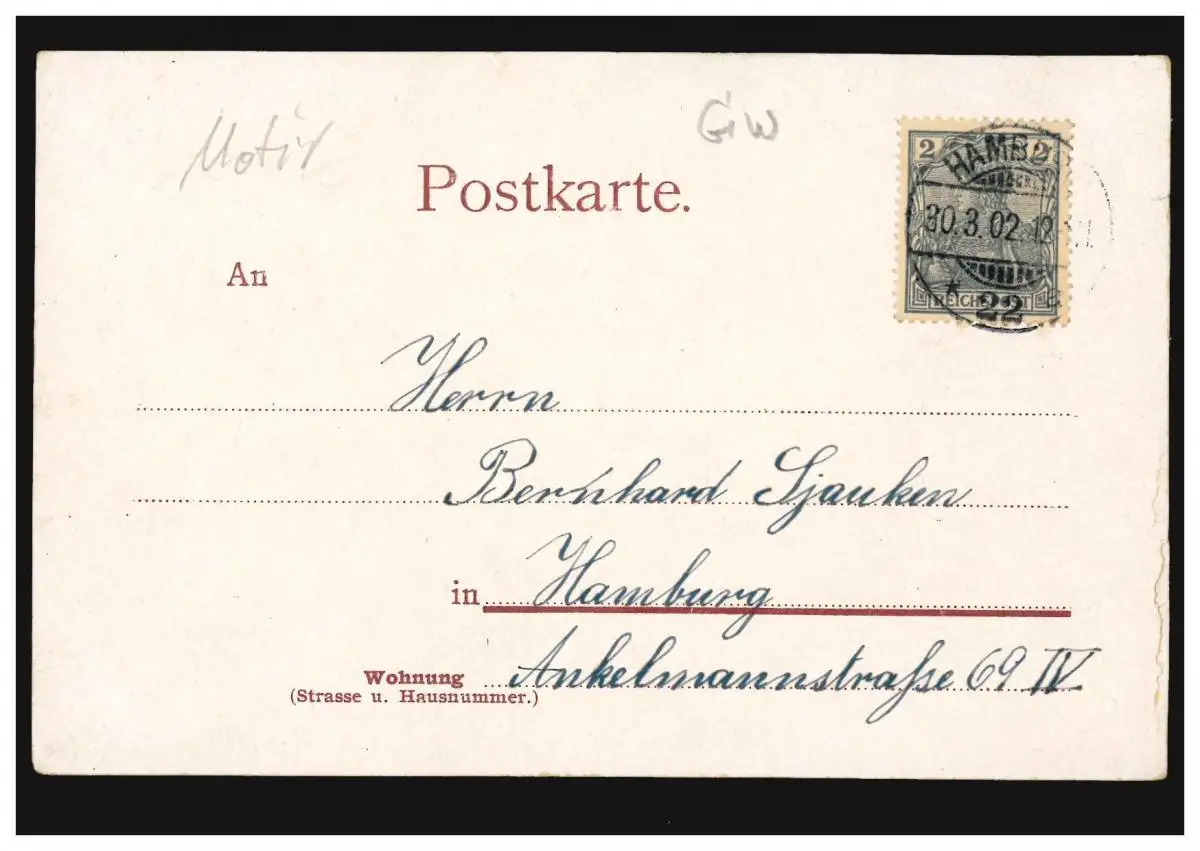 Motiv
GiW
Postkarte.
2 2
REICHSPOST
HAMBU
30.3.02.12-
* 22
An
Herrn
Bernhard Sjauken
in Hamburg
Wohnung Ankelmannstraße 69 IV
(Strasse u. Hausnummer.)